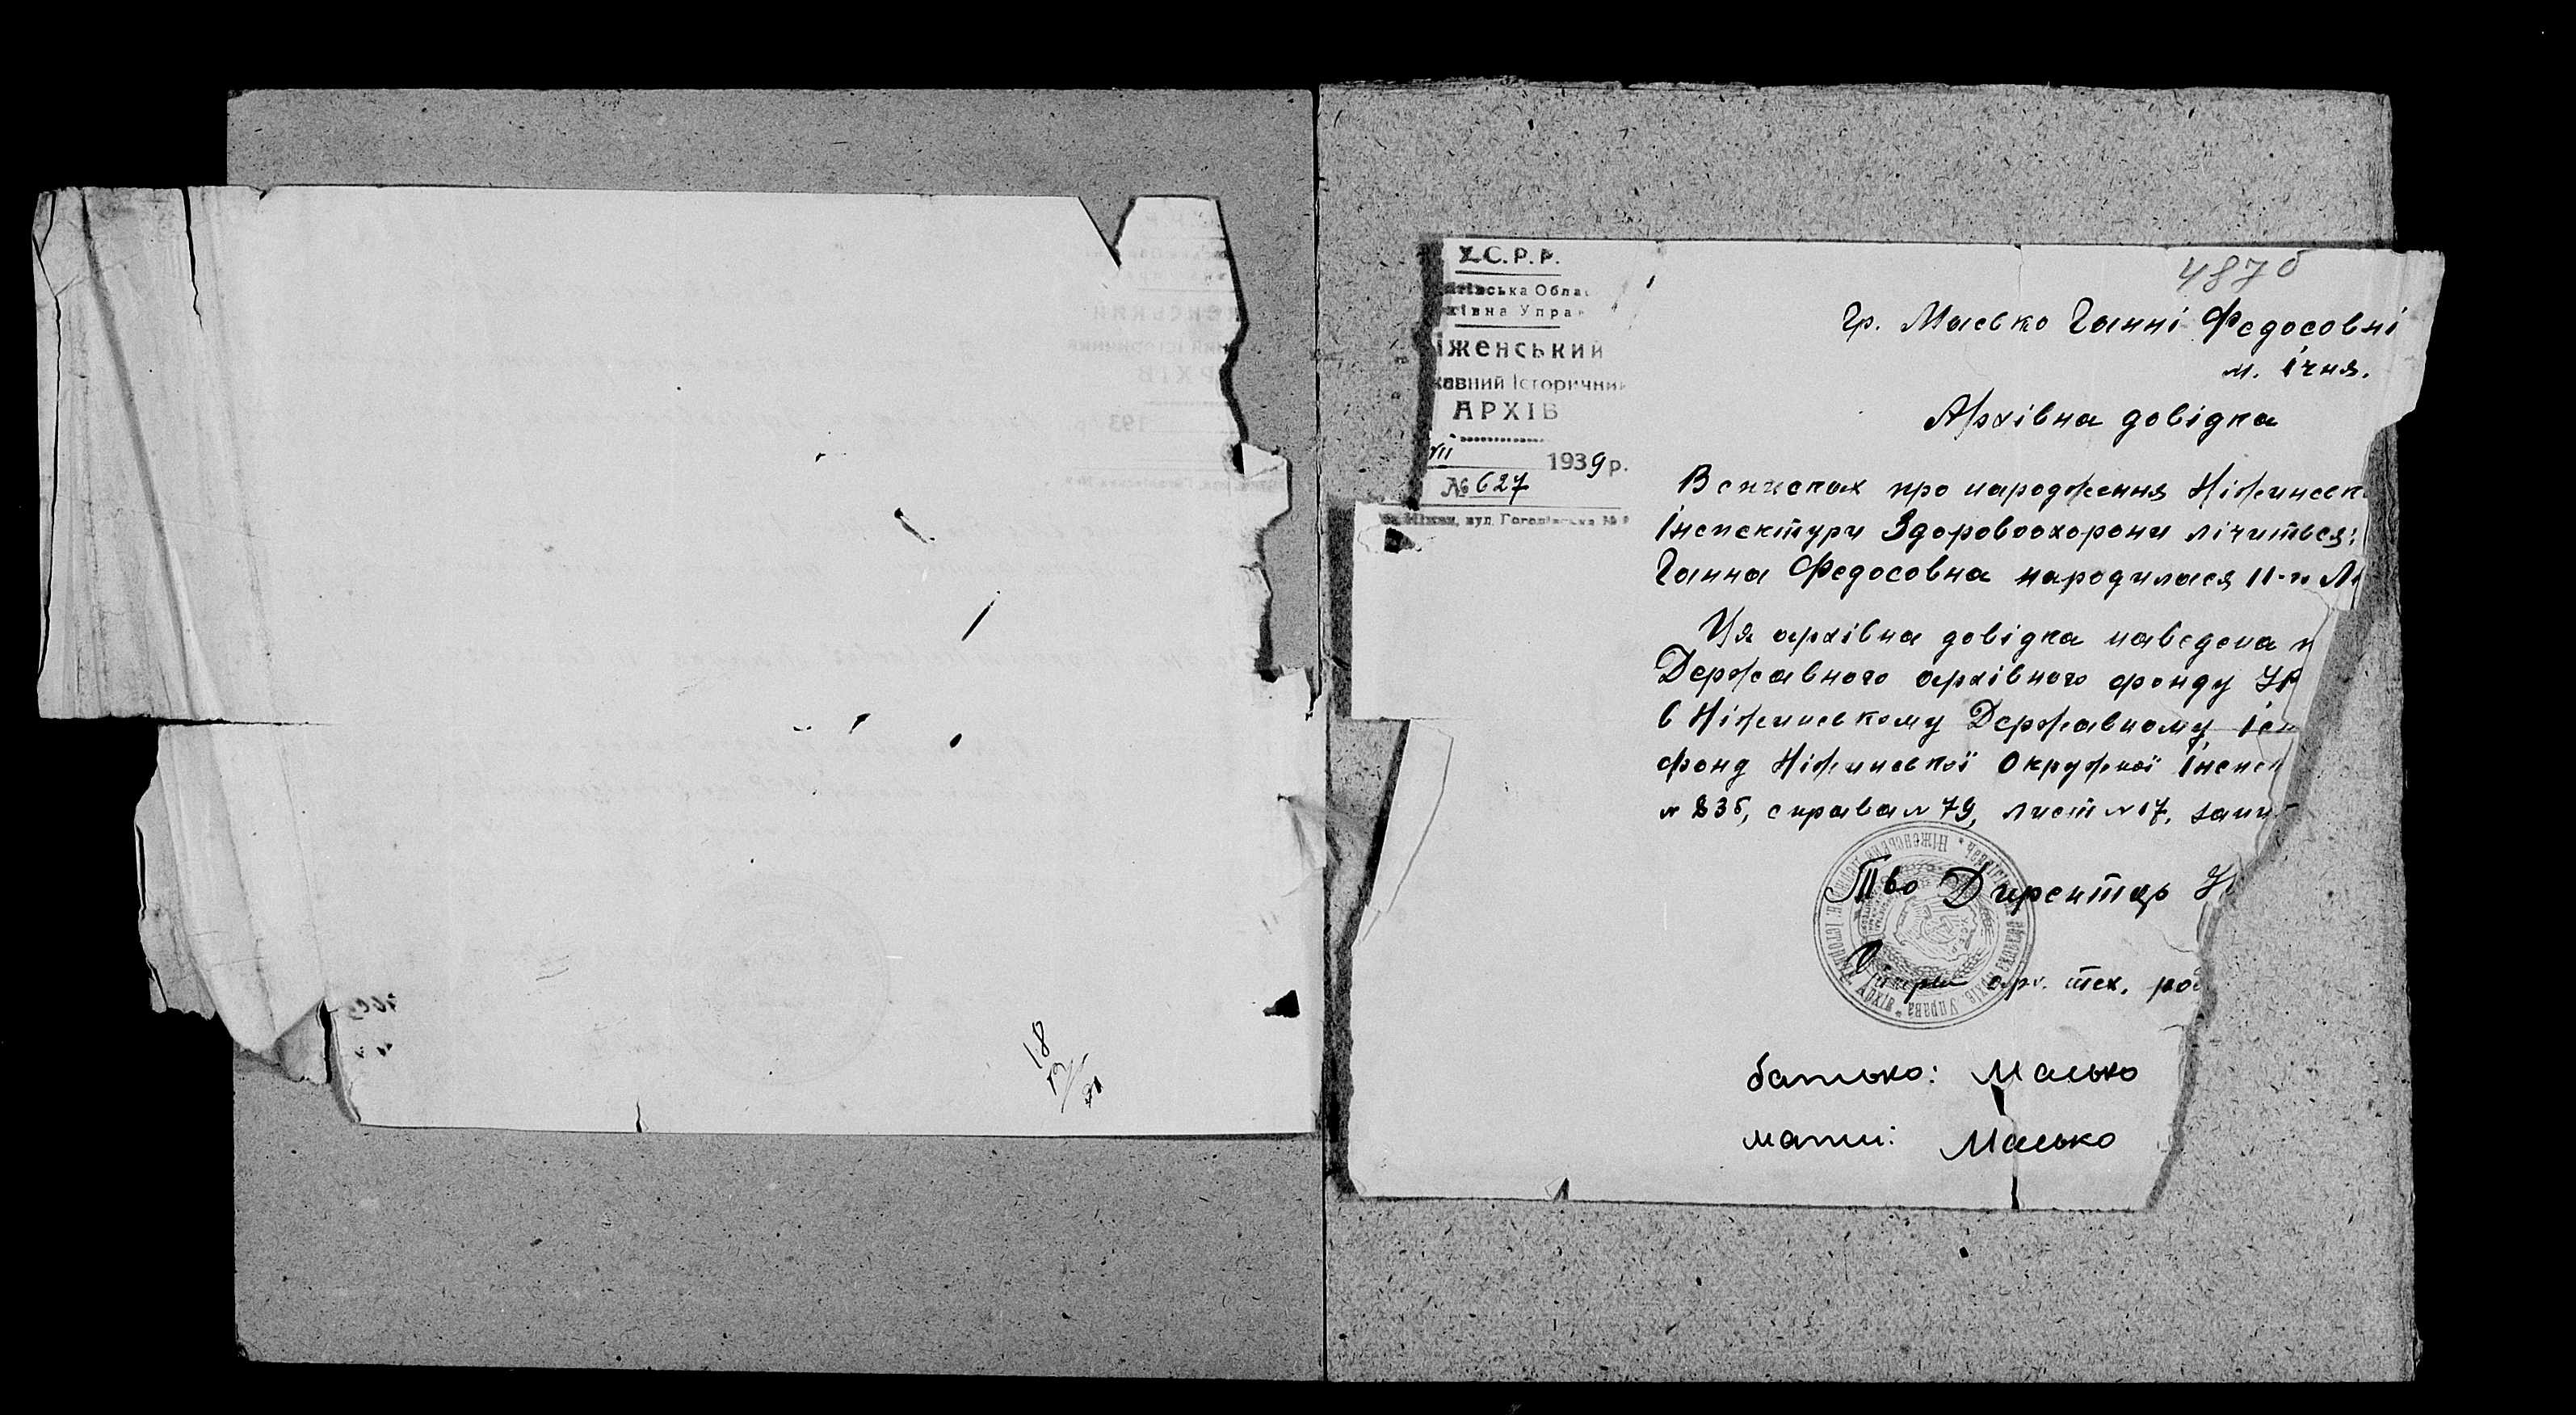 18
487 б
У.С.Р.Р.
івська Обла
івна Управ
іженський
жавний Історичний
АРХІВ
VII
1939 р.
№ 627
м. Ніжен, вул. Гоголівська №
Гр. Масько Ганні Федосовні
м. Ічня.
Архівна довідка
В списках про народження Ніжинськ
Інспектури Здоровоохорони лічиться:
Ганна Федосовна народилася 11-го
Ця архівна довідка наведена
Державного архівного фонду УР
в Ніжинському Державному Іст
фонд Ніжинської Окружної Інспек
№ 835, справа № 79, лист № 17, запи
Тво Директор
арх. тех. роб
батько: Масько
мати: Масько